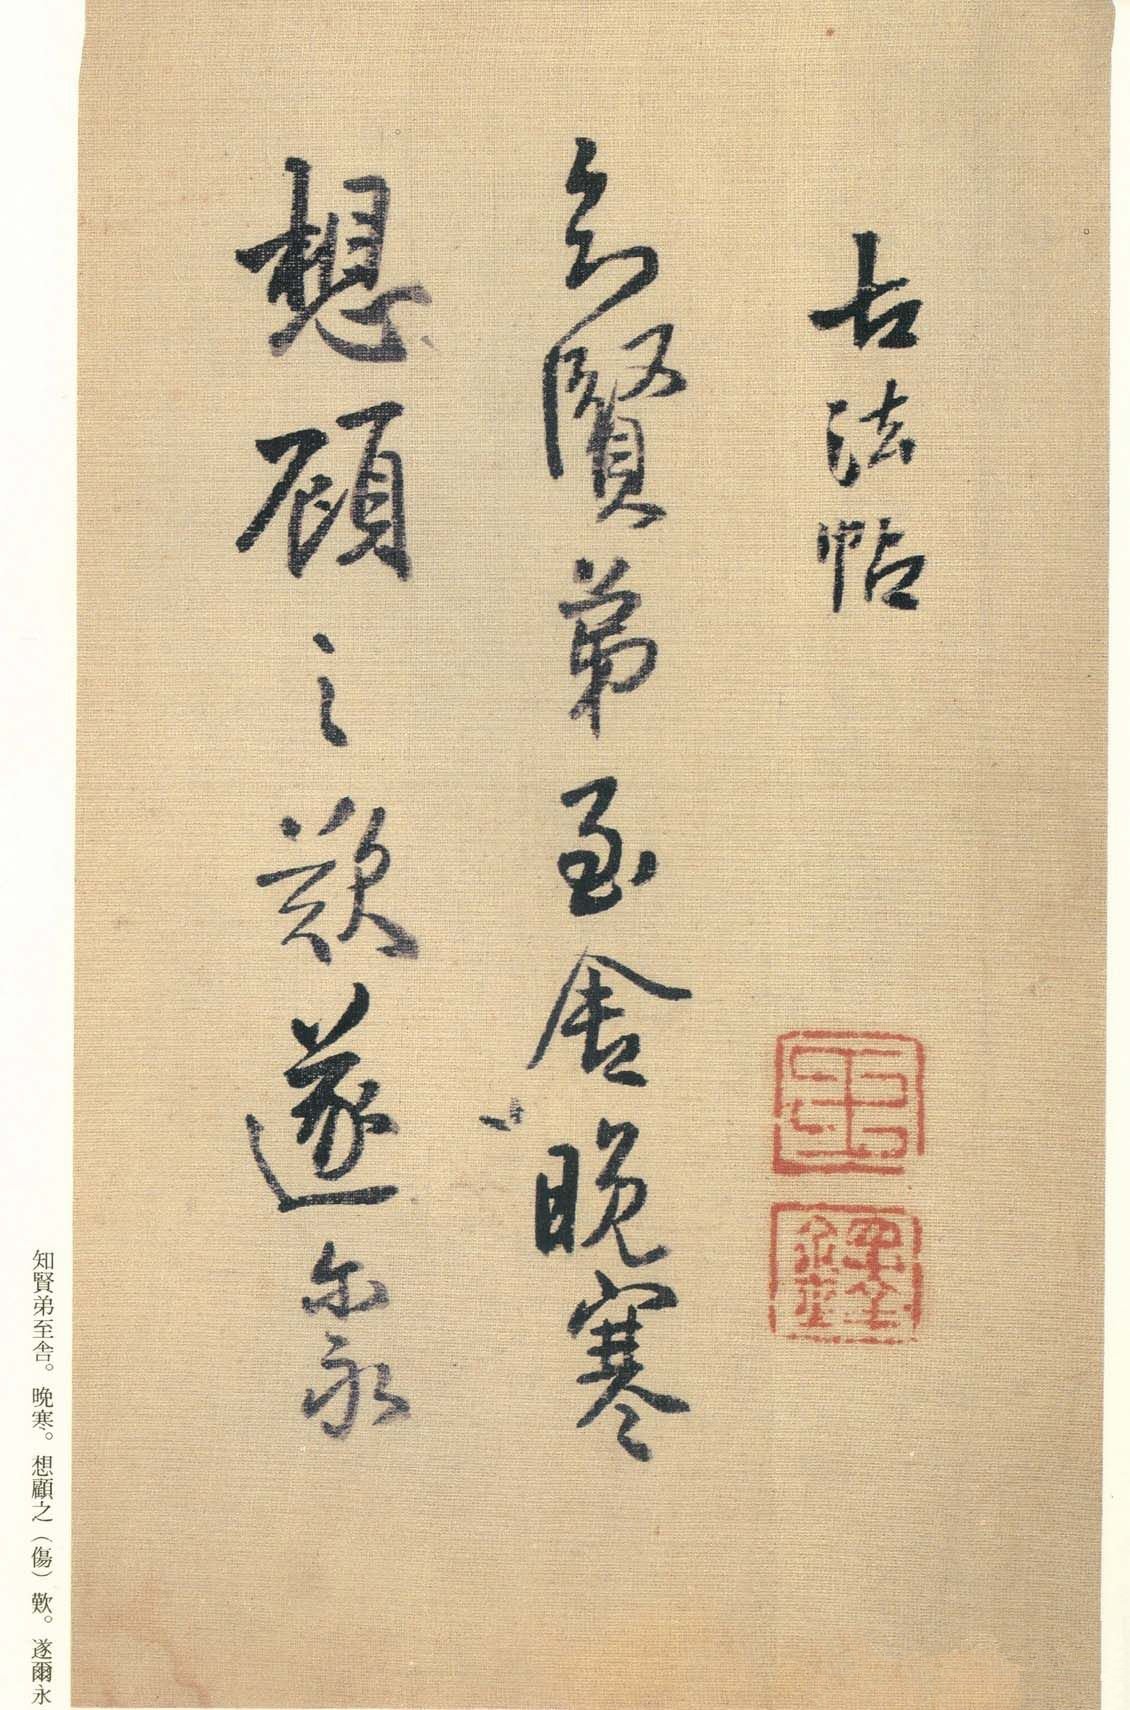 古法帖
王
鐸
知賢弟至舍晚寒
想顧之歎遂尔永
知賢弟至舍。晚寒。想顧之（傷）歎。遂爾永